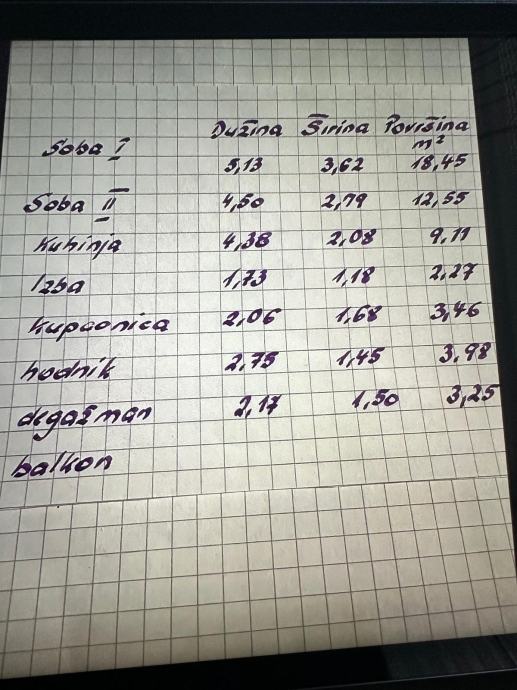 Dužina Širina Površina
m²
Soba I 5,13 3,62 18,45
Soba II 4,50 2,79 12,55
Kuhinja 4,38 2,08 9,11
Izba 1,73 1,18 2,27
Kupaonica 2,06 1,68 3,46
hodnik 2,75 1,45 3,98
degažman 2,17 1,50 3,25
balkon